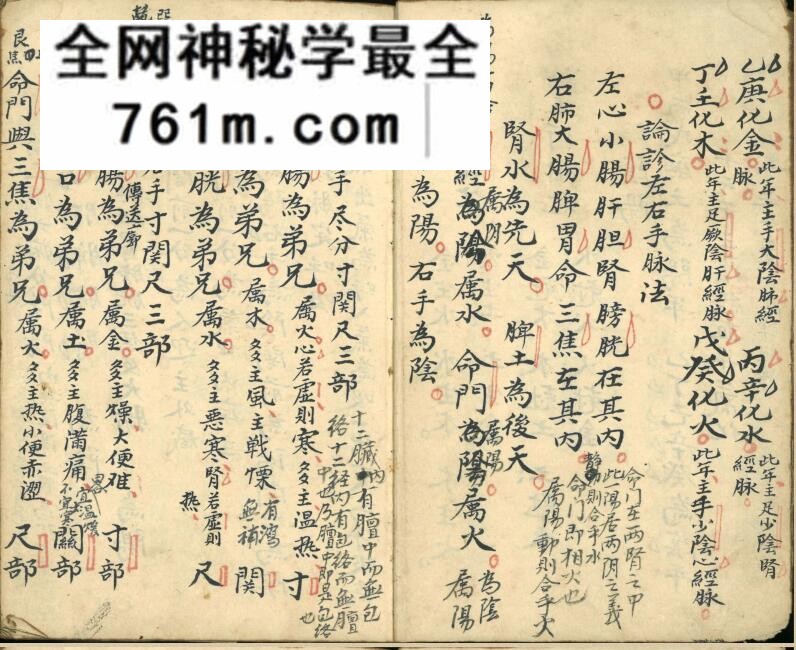 全网神秘学最全
761m.com
乙庚化金 此年主手太陰肺經脉 丙辛化水 此年主足少陰腎經脉
丁壬化木 此年主足厥陰肝經脉 戊癸化火 此年主手少陰心經脉
論診左右手脉法
左心小腸肝胆腎膀胱在其內
命门在两腎之中
此陽居两阴之義
右肺大腸脾胃命三焦在其內
静則合手水
命门即相火也
属陽動則合手火
腎水為先天 属阴 脾土為後天 属陽
經為陰属水 命門為陽属火 為陰属陽
為陽 右手為陰
手尽分寸関尺三部
十二臟内有膻中而無包
络十二経内有包络而無膻
中也乃膻中即是包络也
腸為弟兄属火心若虛則寒多主温热 寸
為弟兄属木多主風主戦慄 有瀉無補 関
胱為弟兄属水多主恶寒腎若虛則热 尺
手寸関尺三部
傳送
腸為弟兄属金多主燥大便难 寸部
為弟兄属土多主腹满痛 宜温燥不宜寒 関部
命門與三焦為弟兄属火多主热小便赤澀 尺部